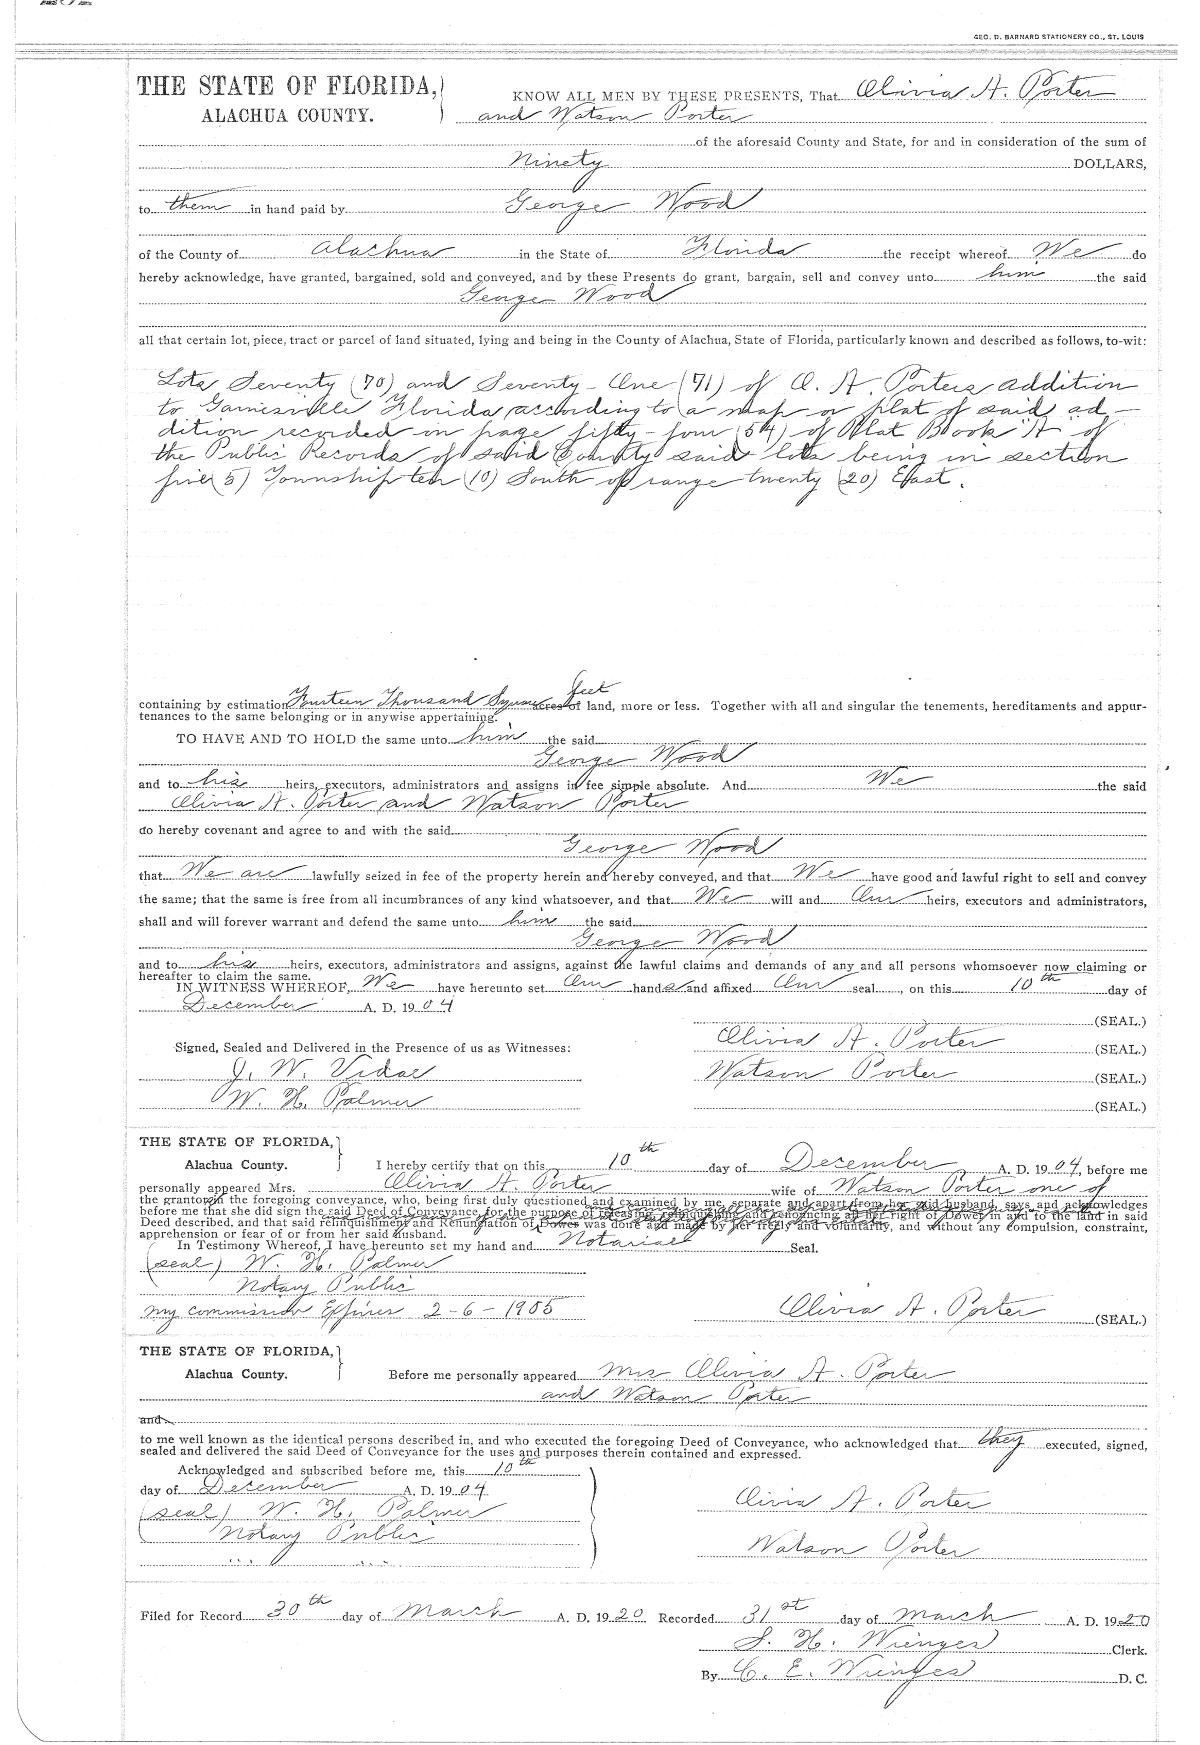 GEO. D. BARNARD STATIONERY CO., ST. LOUIS
THE STATE OF FLORIDA,
ALACHUA COUNTY.
KNOW ALL MEN BY THESE PRESENTS, That Olivia A. Porter
and Watson Porter
of the aforesaid County and State, for and in consideration of the sum of
Ninety DOLLARS,
to them in hand paid by George Wood
of the County of Alachua in the State of Florida the receipt whereof We do
hereby acknowledge, have granted, bargained, sold and conveyed, and by these Presents do grant, bargain, sell and convey unto him the said
George Wood
all that certain lot, piece, tract or parcel of land situated, lying and being in the County of Alachua, State of Florida, particularly known and described as follows, to-wit:
Lots Seventy (70) and Seventy-One (71) of O. A. Porters addition
to Gainesville Florida according to a map or plat of said ad-
dition recorded in page fifty-four (54) of Plat Book "A" of
the Public Records of said County said lots being in section
five (5) Township ten (10) South of range twenty (20) East.
containing by estimation Fourteen Thousand Square feet acres of land, more or less. Together with all and singular the tenements, hereditaments and appur-
tenances to the same belonging or in anywise appertaining.
TO HAVE AND TO HOLD the same unto him the said
George Wood
and to his heirs, executors, administrators and assigns in fee simple absolute. And We the said
Olivia A. Porter and Watson Porter
do hereby covenant and agree to and with the said
George Wood
that We are lawfully seized in fee of the property herein and hereby conveyed, and that We have good and lawful right to sell and convey
the same; that the same is free from all incumbrances of any kind whatsoever, and that We will and Our heirs, executors and administrators,
shall and will forever warrant and defend the same unto him the said
George Wood
and to his heirs, executors, administrators and assigns, against the lawful claims and demands of any and all persons whomsoever now claiming or
hereafter to claim the same.
IN WITNESS WHEREOF, We have hereunto set Our hands and affixed Our seal, on this 10th day of
December A. D. 1904
(SEAL.)
Olivia A. Porter (SEAL.)
Signed, Sealed and Delivered in the Presence of us as Witnesses:
J. W. Vidal Watson Porter (SEAL.)
W. H. Palmer (SEAL.)
THE STATE OF FLORIDA,
Alachua County. I hereby certify that on this 10th day of December A. D. 1904, before me
personally appeared Mrs. Olivia A. Porter wife of Watson Porter one of
the grantors in the foregoing conveyance, who, being first duly questioned and examined by me, separate and apart from her said husband, says and acknowledges
before me that she did sign the said Deed of Conveyance, for the purpose of releasing, relinquishing and renouncing all her right of Dower in and to the land in said
Deed described, and that said relinquishment and Renunciation of Dower was done and made by her freely and voluntarily, and without any compulsion, constraint,
apprehension or fear of or from her said husband.
In Testimony Whereof, I have hereunto set my hand and Notarial Seal.
(seal) W. H. Palmer
Notary Public
my commission Expires 2-6-1905 Olivia A. Porter (SEAL.)
THE STATE OF FLORIDA,
Alachua County. Before me personally appeared Mrs Olivia A. Porter
and Watson Porter
and
to me well known as the identical persons described in, and who executed the foregoing Deed of Conveyance, who acknowledged that they executed, signed,
sealed and delivered the said Deed of Conveyance for the uses and purposes therein contained and expressed.
Acknowledged and subscribed before me, this 10th
day of December A. D. 1904
(seal) W. H. Palmer Olivia A. Porter
Notary Public
Watson Porter
Filed for Record 30th day of March A. D. 1920 Recorded 31st day of March A. D. 1920
S. H. Wienges Clerk.
By C. E. Wienges D. C.